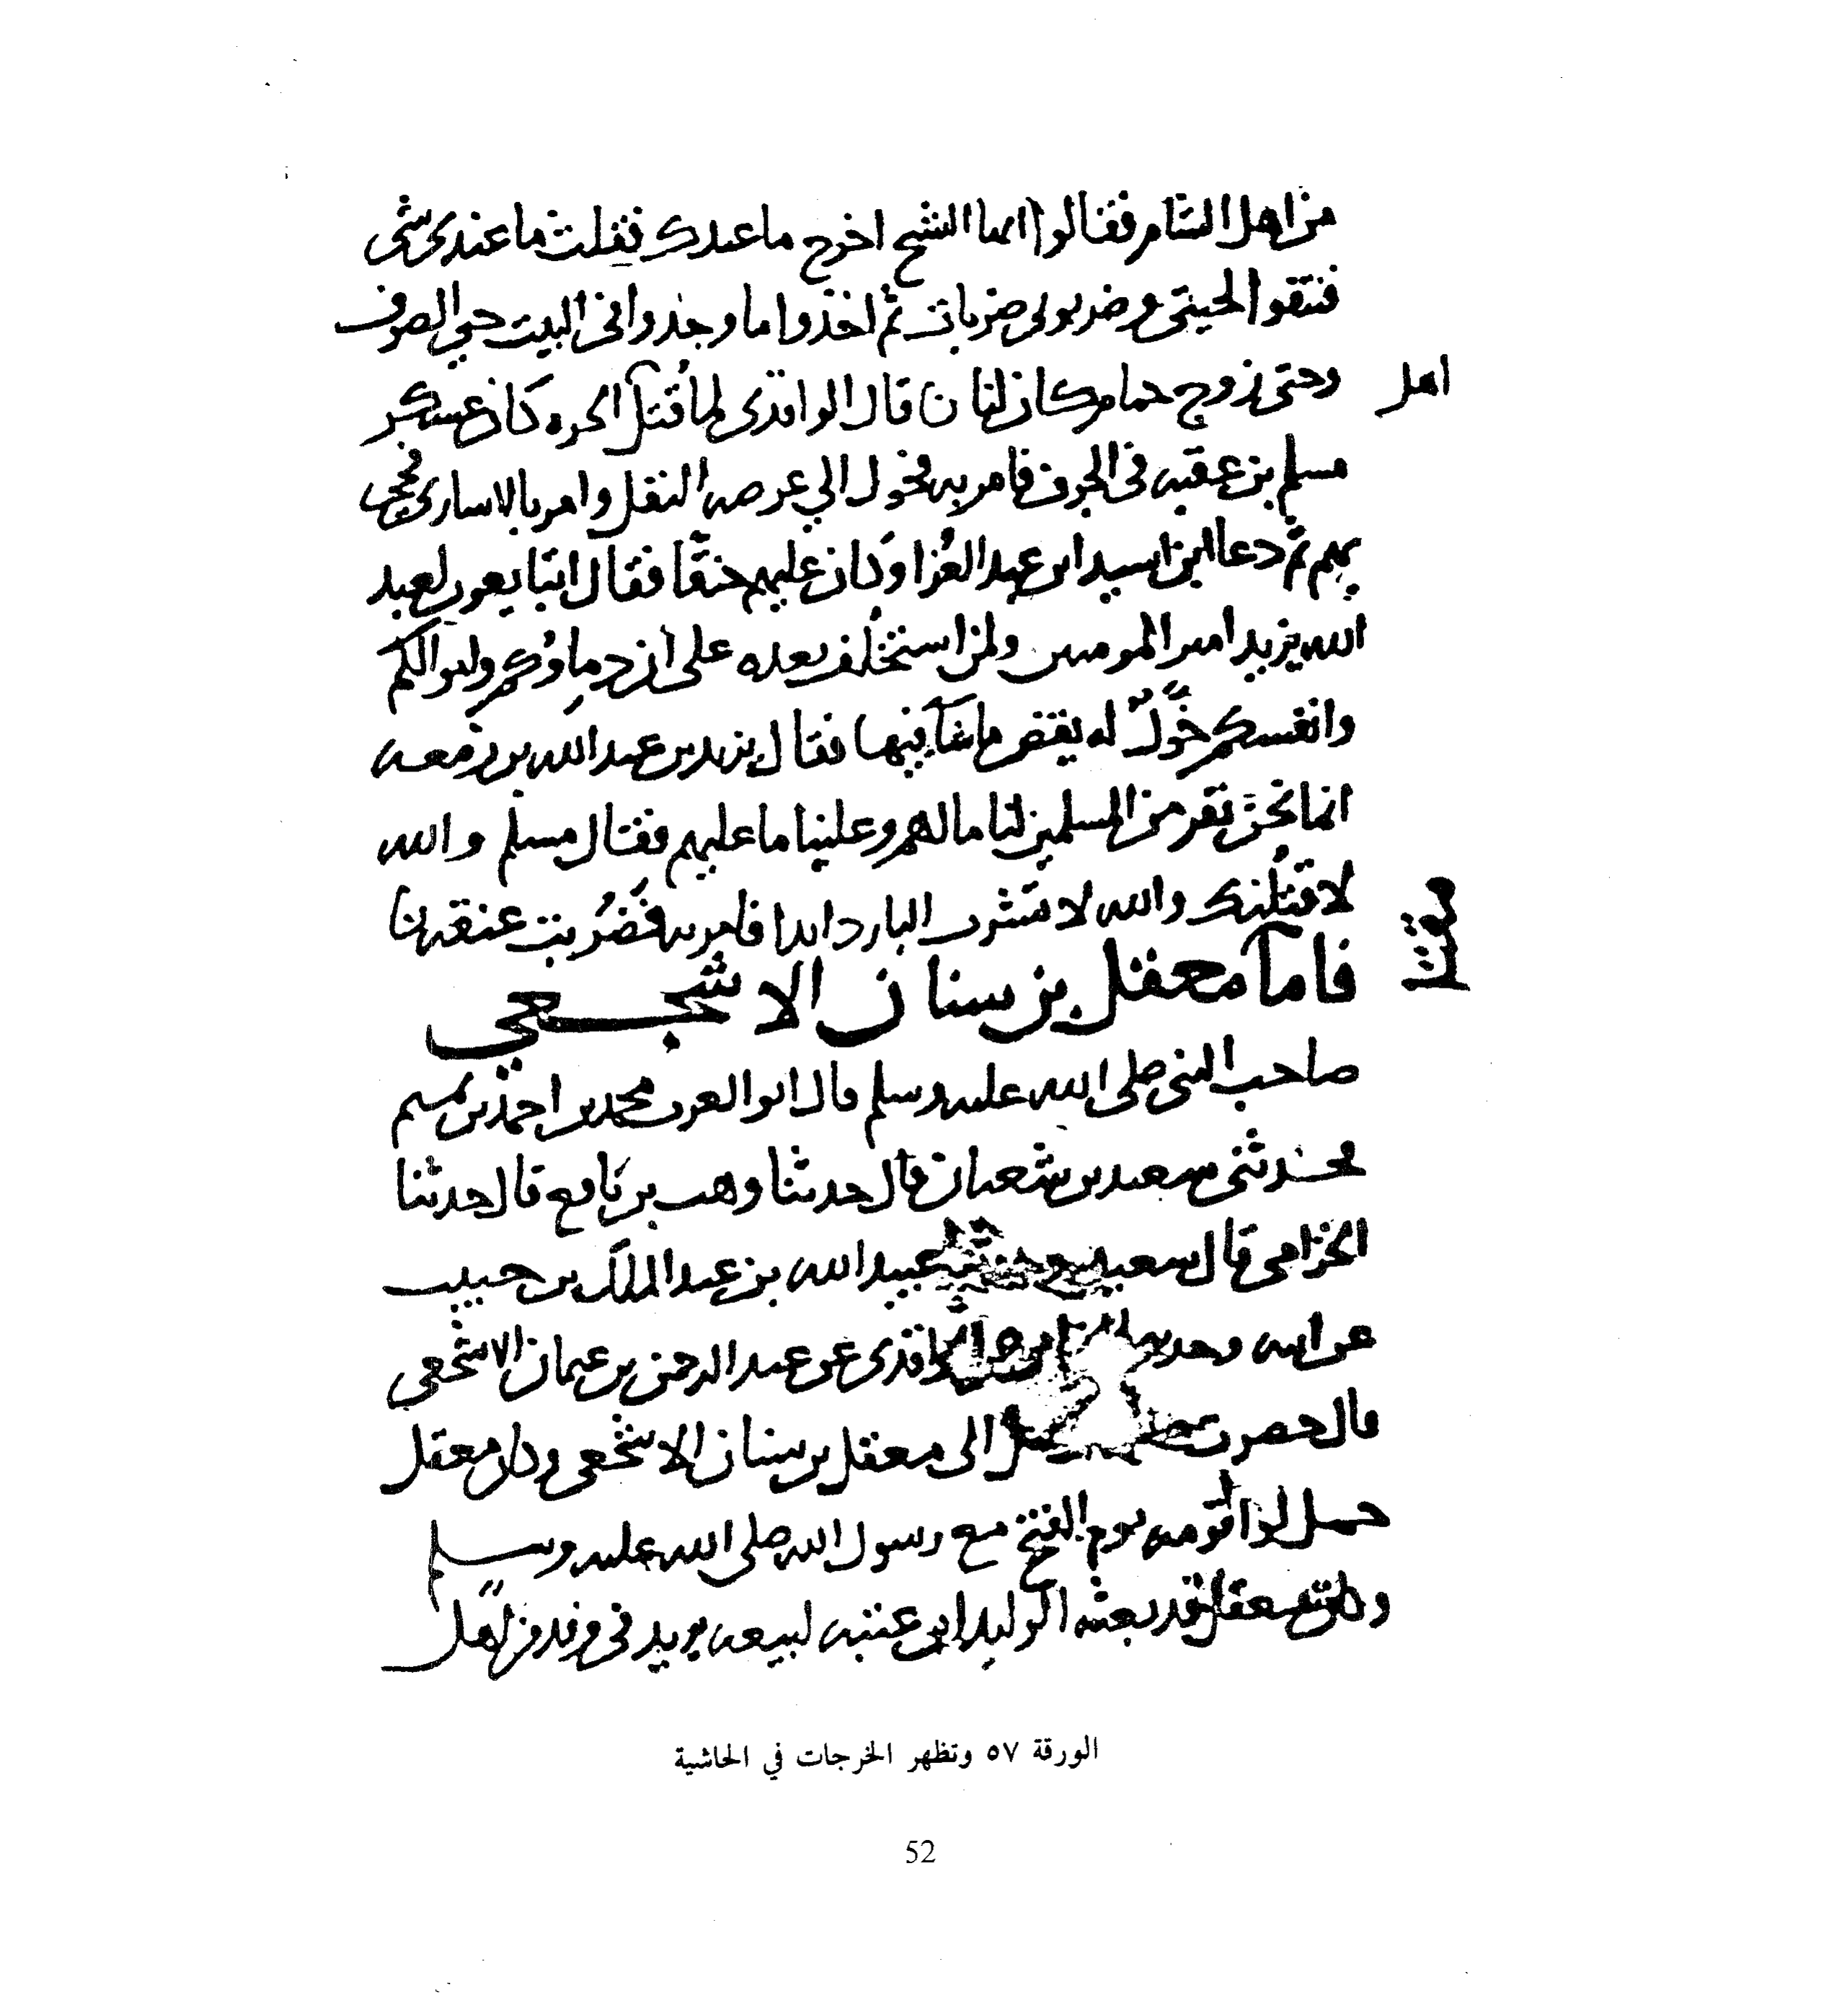 من اهل الشام فقالوا ايها الشيخ اخرج ما عندك فقلت ما عندي شي
فنتفوا لحيتي وضربوني ضربات ثم اخذوا ما وجدوا في البيت حتي الصوف
اهل
وحتى زوج حمام كان لنا ن قال الواقدى لما قتل الحره كان عسكر
مسلم بن عقبه في الجرف فامر به فحول الي عرصه النقل وامر بالاسارى فجى
بهم ثم دعا ابن اسيد ابن عبد العزا وكان عليهم حنقا فقال اتبايعون لعبد
الله يزيد امير المومنين ولمن استخلف بعده على ان دماوكم واموالكم
وانفسكم خول له يقضى ما شا فيها فقال يزيد بن عبد الله بن زمعه
انما نحن نفر من المسلمين لنا ما لهم وعلينا ما عليهم فقال مسلم والله
لاقتلنك والله لا تشرب البارد ابدا فامر به فضربت عنقه
فاما معقل بن سنان الاشجعي
صاحب النبي صلى الله عليه وسلم قال ابو العرب محمد بن احمد بن تميم
حدثني سعيد بن شعبان قال حدثنا وهب بن نافع قال حدثنا
الخزامى قال سعيد عبيد الله بن عبد الملك بن حبيب
عن ابيه عن عبد الرحمن بن عثمان الاشجعي
قال الى معقل بن سنان الاشجعي وكان معقل
حمل لوا قومه يوم الفتح مع رسول الله صلى الله عليه وسلم
قد بعثه الوليد ابن عتبه لبيعه يزيد في وفد من اهل
الورقة ٥٧ وتظهر الخرجات في الحاشية
52